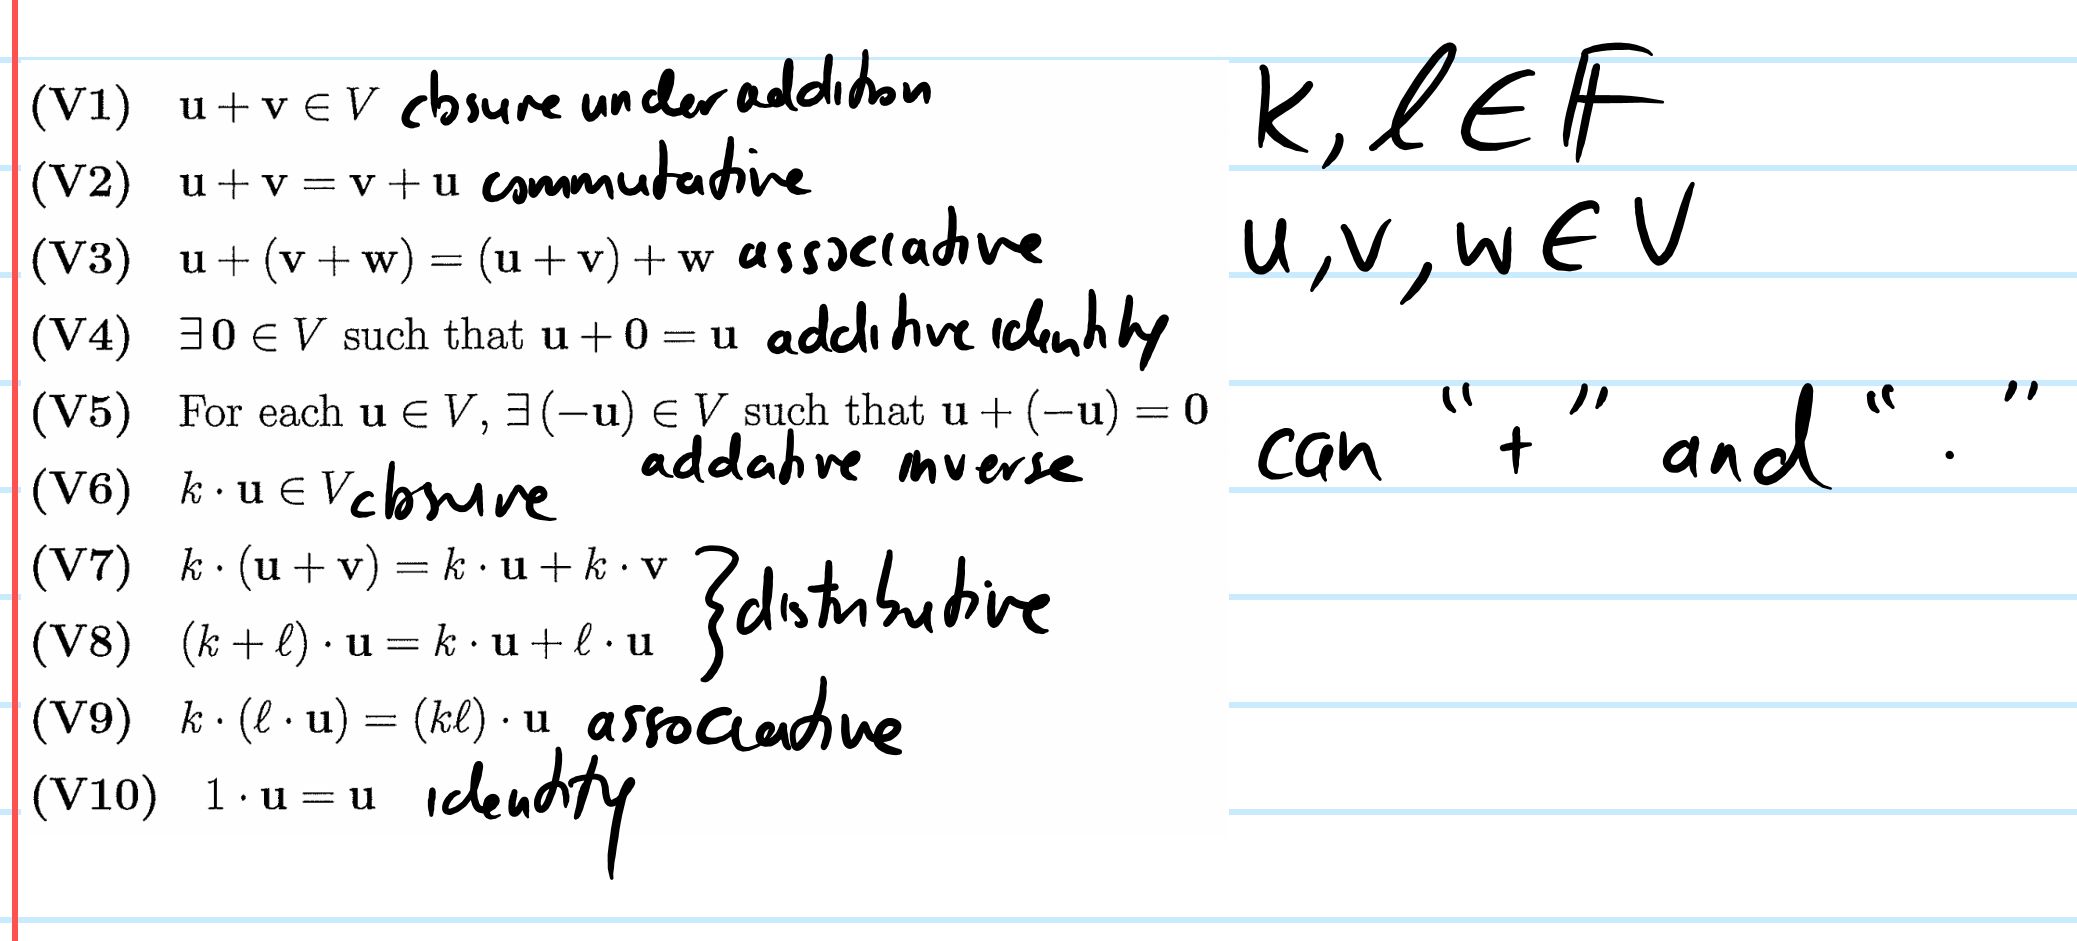 (V1) u + v ∈ V closure under addition
(V2) u + v = v + u commutative
(V3) u + (v + w) = (u + v) + w associative
(V4) ∃ 0 ∈ V such that u + 0 = u additive identity
(V5) For each u ∈ V, ∃ (−u) ∈ V such that u + (−u) = 0
addative inverse
(V6) k · u ∈ V closure
(V7) k · (u + v) = k · u + k · v
(V8) (k + ℓ) · u = k · u + ℓ · u
} distributive
(V9) k · (ℓ · u) = (kℓ) · u associative
(V10) 1 · u = u identity
k, ℓ ∈ 𝔽
u, v, w ∈ V
can “+” and “·”